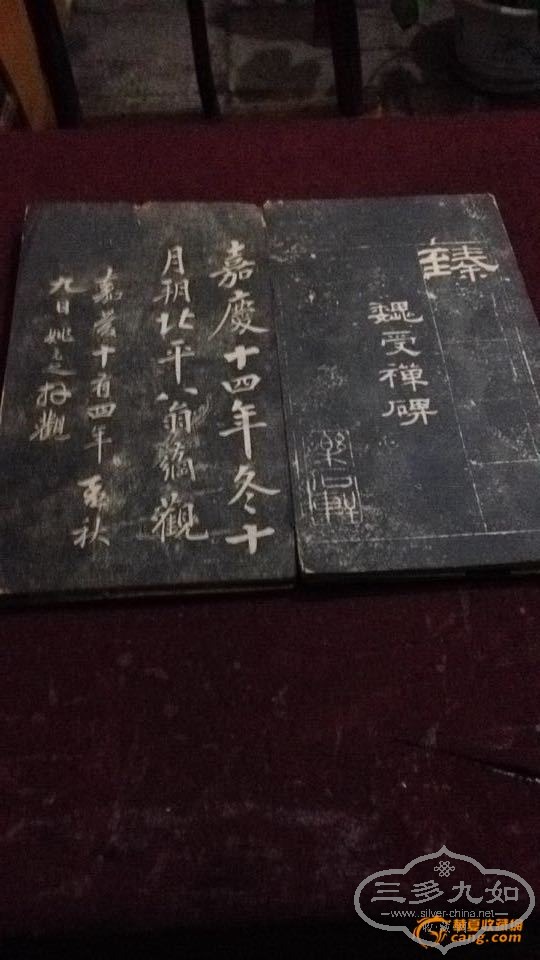 臻
魏受禪碑
嘉慶十四年冬十
月朔北平翁觀
嘉慶十有四年秋
九日姚之觀
三多九如
—www.silver-china.net—
華夏收藏網
cang.com